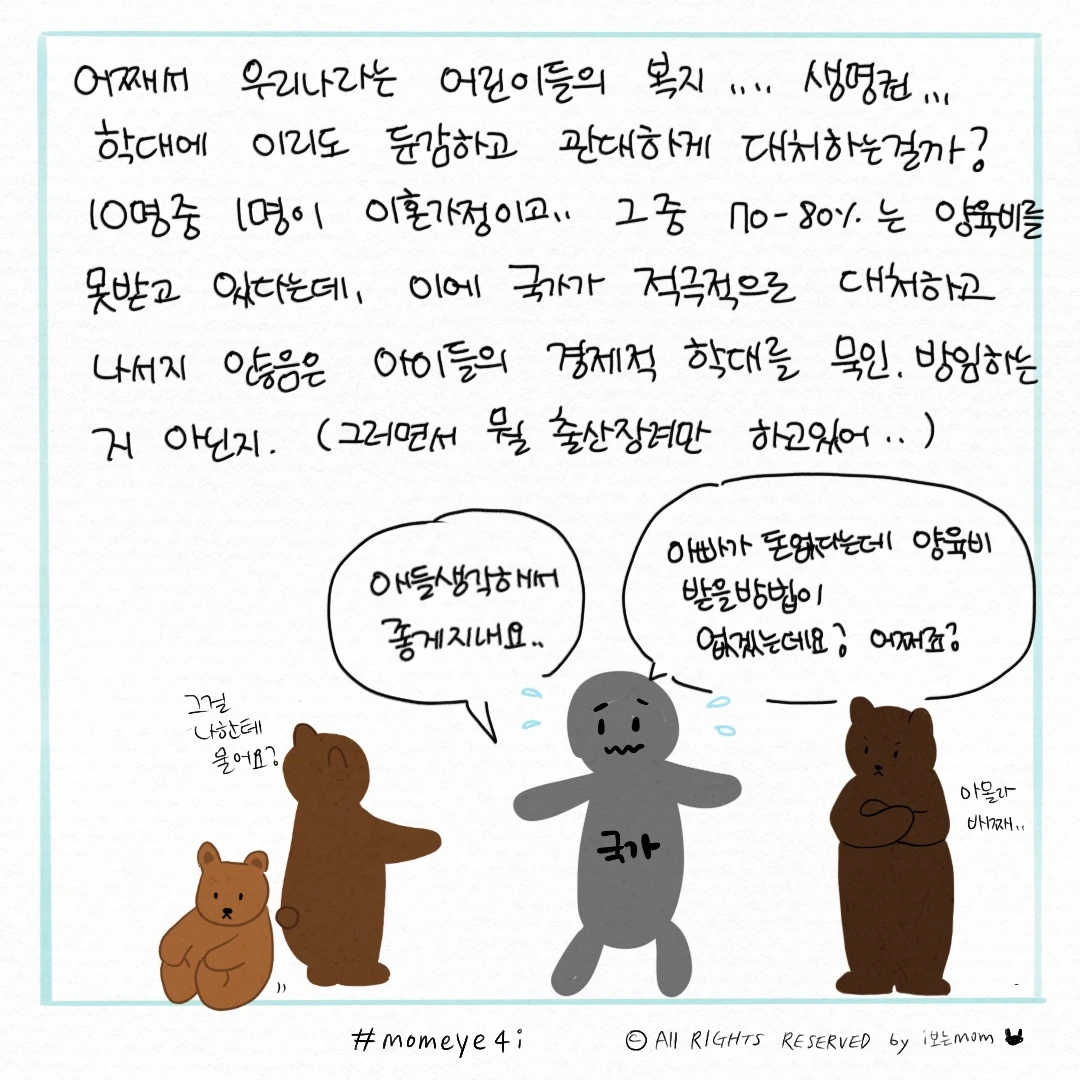 어째서 우리나라는 어린이들의 복지 .... 생명권...
학대에 이리도 둔감하고 관대하게 대처하는걸까?
10명중 1명이 이혼가정이고.. 그 중 70-80% 는 양육비를
못받고 있다는데, 이에 국가가 적극적으로 대처하고
나서지 않음은 아이들의 경제적 학대를 묵인. 방임하는
거 아닌지. (그러면서 뭘 출산장려만 하고있어..)
애들생각해서
좋게지내요..
아빠가 돈없다는데 양육비
받을방법이
없겠는데요? 어쩌죠?
그걸
나한테
물어요?
국가
아몰라
배째..
#momeye4i
© All RIGHTS RESERVED by i보는mom